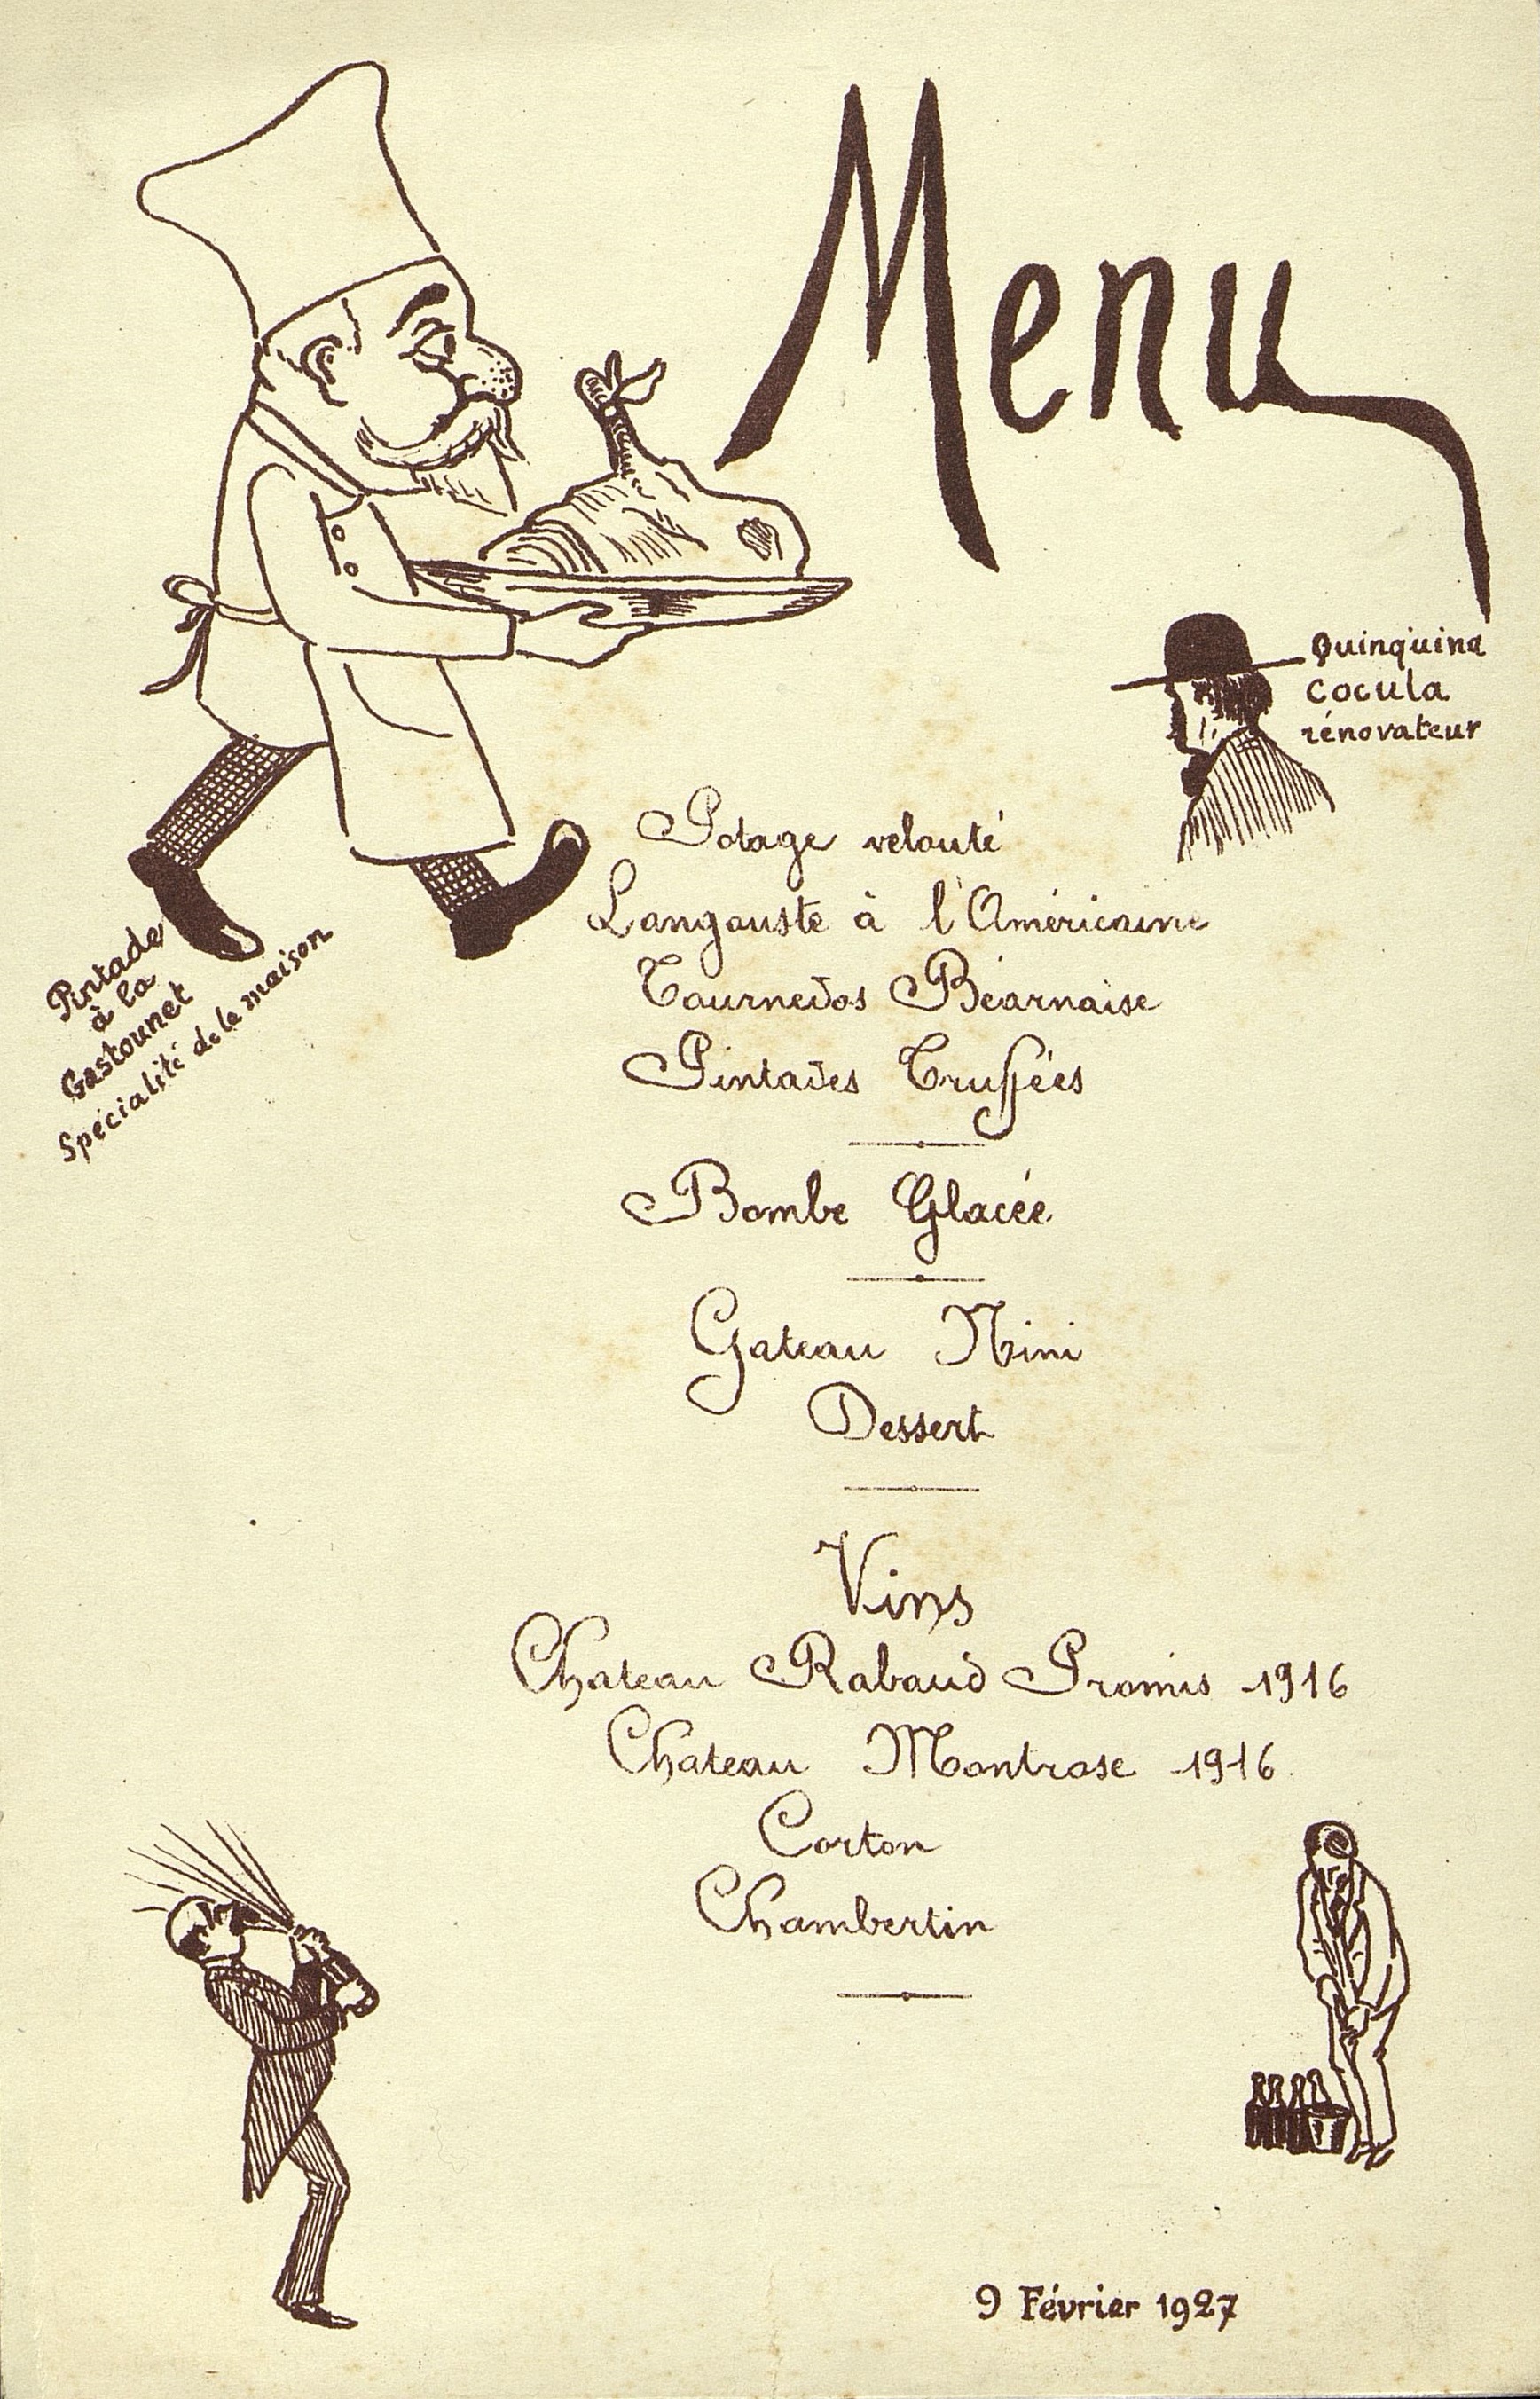 Menu
Quinquina
Cocula
rénovateur
Potage velouté
Langouste à l'Américaine
Tournedos Béarnaise
Pintades Truffées
Pintade
à la
Gastounet
Spécialité de la maison
Bombe Glacée
Gateau Nini
Dessert
Vins
Chateau Rabaud Promis 1916
Chateau Montrose 1916
Corton
Chambertin
9 Février 1927